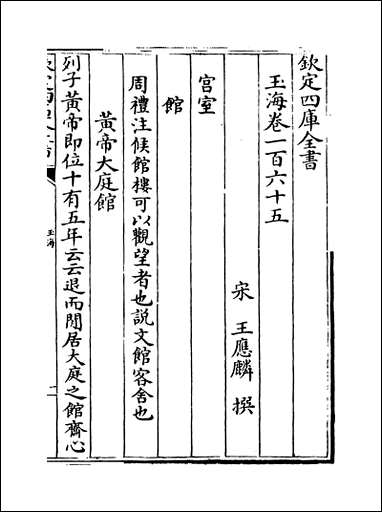 欽定四庫全書
玉海卷一百六十五
宋 王應麟 撰
宫室
館
周禮注候館樓可以觀望者也説文館客舍也
黄帝大庭館
列子黄帝即位十有五年云云退而閒居大庭之館齊心
欽定四庫全書
玉海